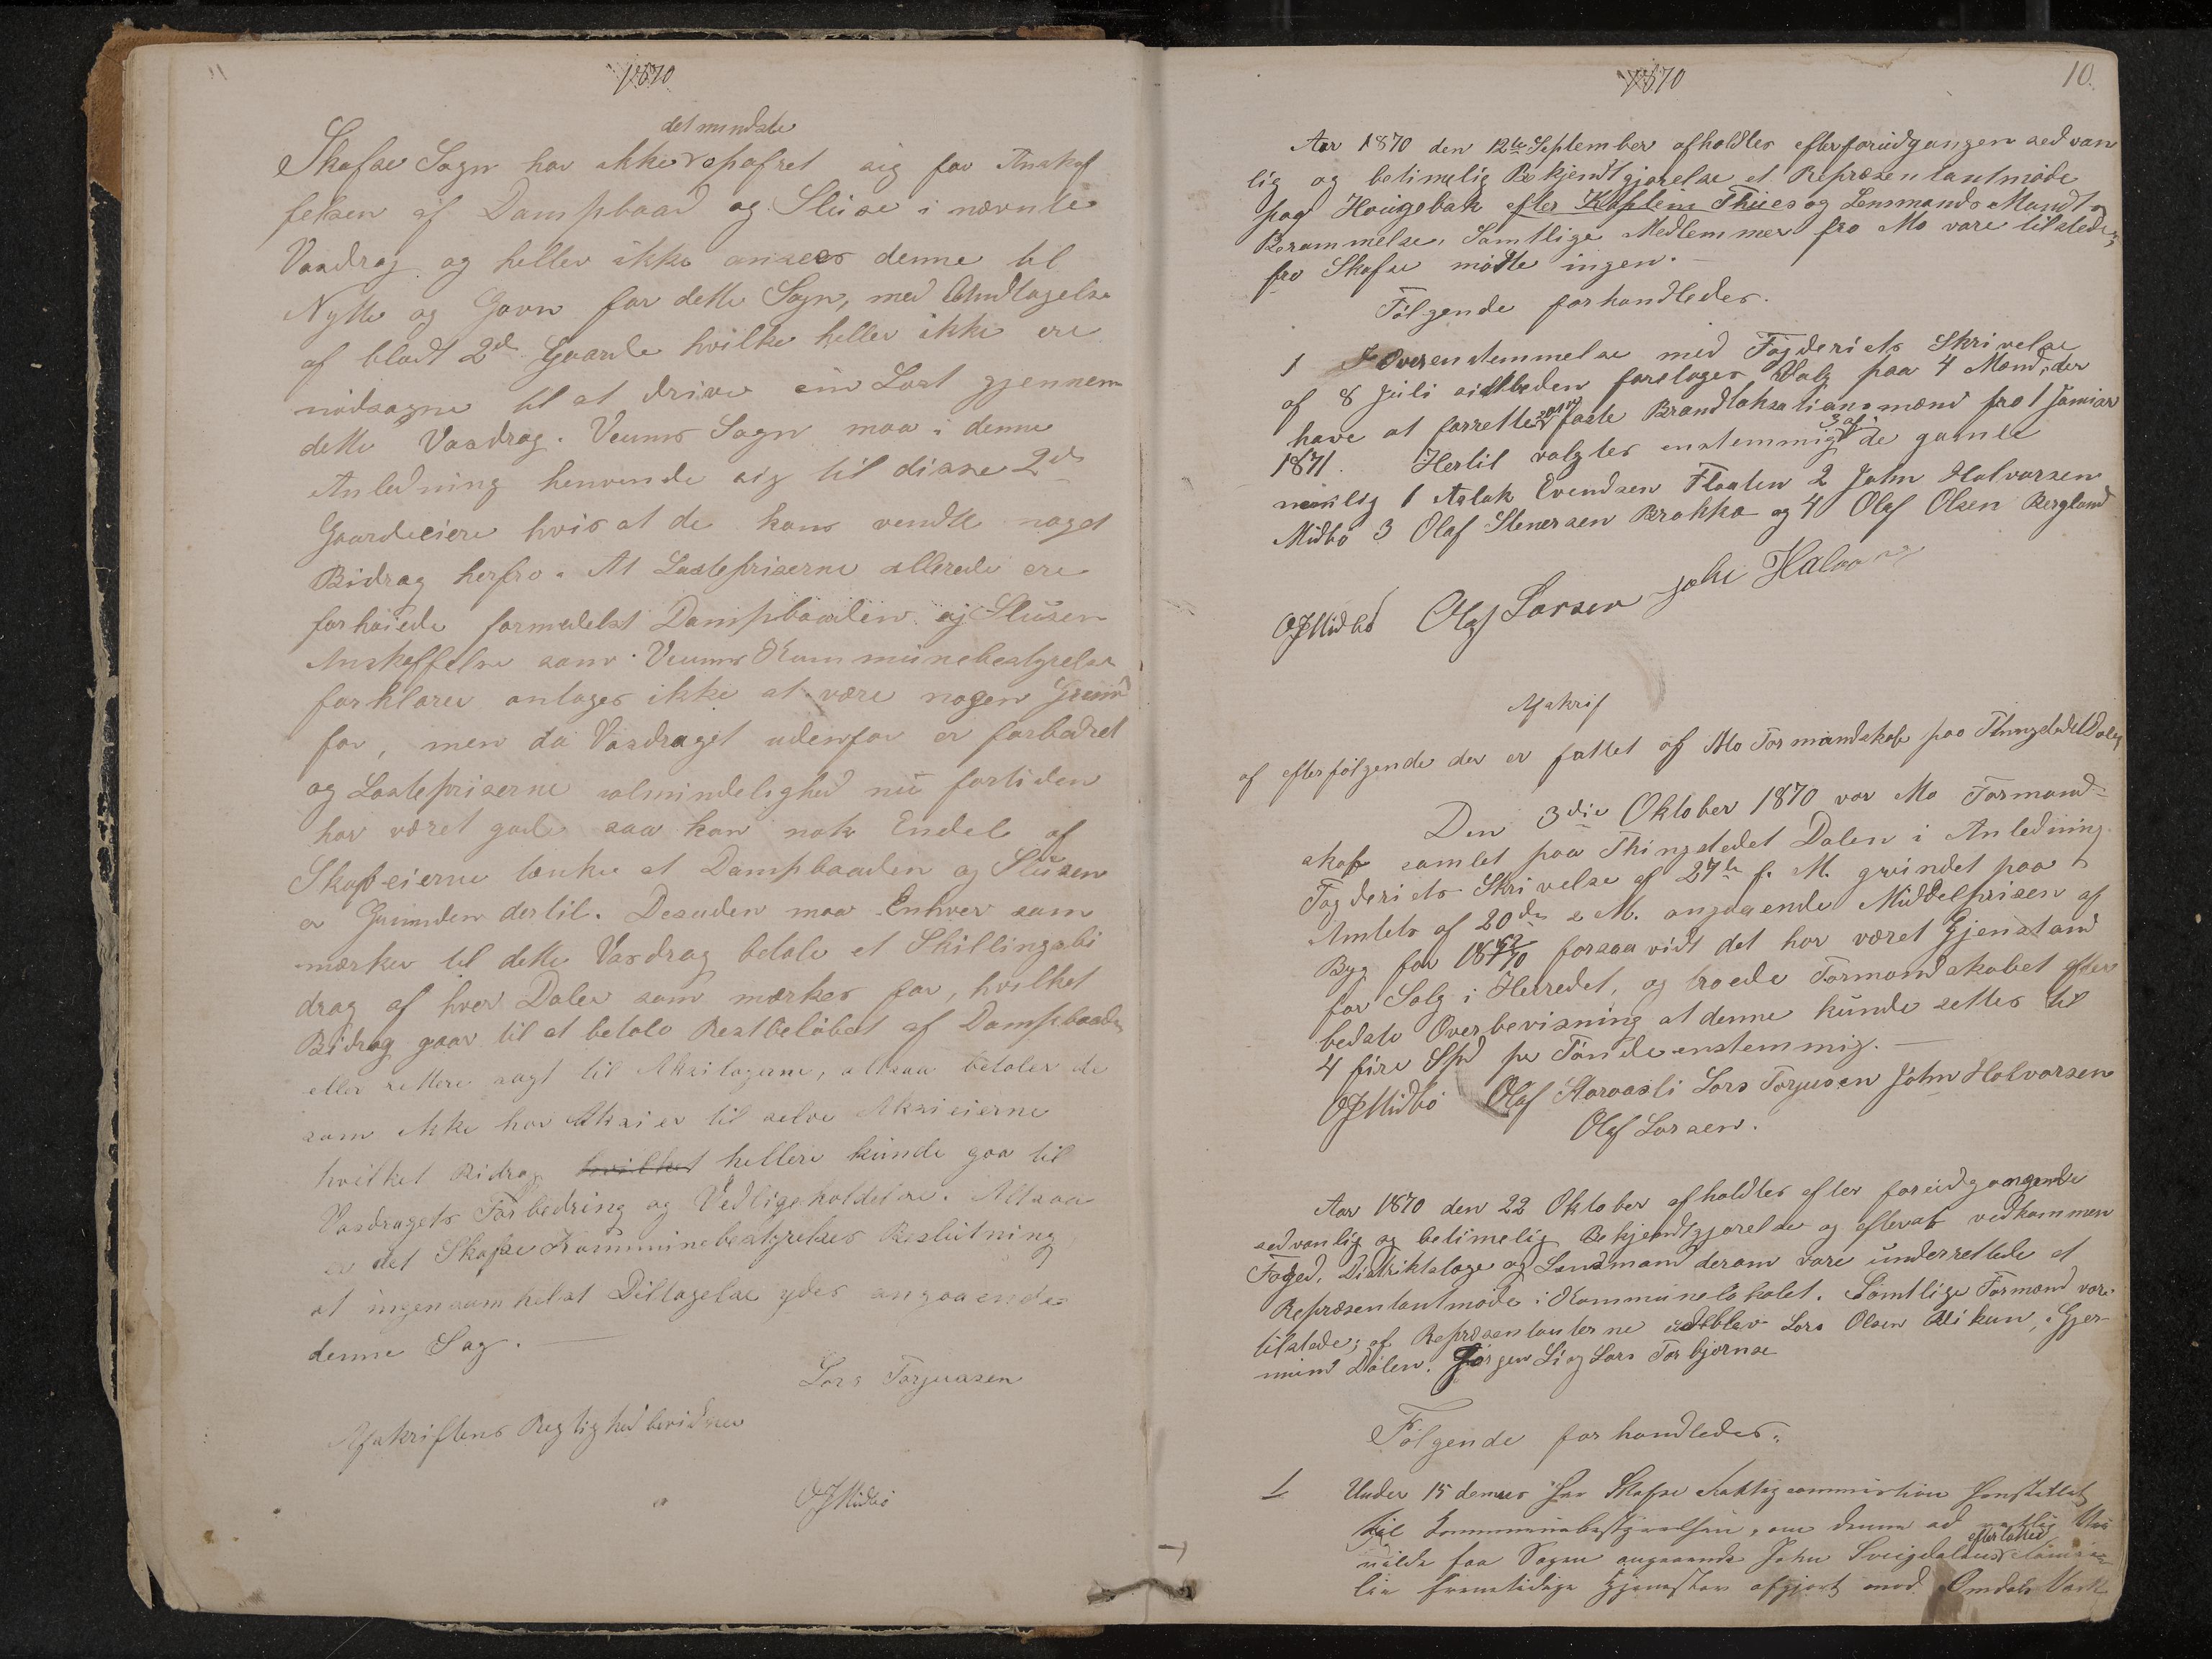 1870
det mindste
Skafse Sogn har ikke opofret sig for Anskaf
felsen af Dampbaad og Sluse i nævnte
Vasdrag og heller ikke ansees denne til
Nytte og Gavn for dette Sogn, med Undtagelse
af blodt 2de Gaarde hvilke heller ikke ere
nødsagne til at drive sin Last gjennem
dette Vasdrag. Veums Sogn maa i denne
Anledning henvende sig til disse 2de
Gaardeeiere hvis at de kans vendte noget
Bidrag herfra. At Lastepriserne allerede ere
forhøiede formedelst Dampbaaden og Slusen
Anskaffelse som Veums Kommunebestyrelse
forklarer antages ikke at være nogen Grund
for, men da Vasdraget udenfor er forbedret
og Lastepriserne almindelighed nu fortiden
har været gode saa kan nok Endel af
Skogeierne tænke at Dampbaaden og Slusen
er Grunden dertil. Desuden maa Enhver som
mærker til dette Vasdrag betale et Skillingsbi
drag af hver Daler som mærkes for, hvilket
Bidrag gaar til at betale Restbeløbet af Dampbaaden
eller rettere sagt til Aksitagerne, altsaa betaler de
som ikke har Aksier til selve Aksieierne
hvilket Bidrag hvilket hellere kunde gaa til
Vasdragets Forbedring og Vedligeholdelse. Altsaa
er det Skafse Kommunebestyrelses Beslutning
at ingensomhelst Diltagelse ydes angaaende
denne Sag.
Lars Torjussen
Afskriftens Rigtighed bevidner
OJMidbø
1870
10.
Aar 1870 den 12te September afholdtes efterforudgangen sedvan
lig og betimelig Bekjendtgjørelse et Repræsentantmøde
paa Haugebak efter Kaptein Thues og Lensmands Mandt
Berammelse. Samtlige Medlemmer fra Mo vare tilstede,
fra Skafse mødte ingen.
Følgende forhandledes.
1 I Overenstemmelse med Fogderiets Skrivelse
af 8 Juli sidstleden foretages Valg paa 4 Mænd, der
have at forrette som faste Brandtaksationsmænd fra 1 Januar
1871. Hertil valgtes enstemmig 3 af de gamle
nemlig 1 Aslak Evendsen Flaaten 2 John Halvorsen
Midbø 3 Olaf Stenersen Brokka og 4 Olaf Olsen Bergland
OJMidbø Olaf Larsen John Halvors
Afskrif
af efterfølgende der er fattet af Mo Formandskab paa Thingstedet Dalen
Den 3die Oktober 1870 var Mo Formand-
skab samlet paa Thingstedet Dalen i Anledning
Fogderiets Skrivelse af 27de f. M. grundet paa
Amtets af 20de s. M. angaaende Middelprisen af
Byg for 1869/70 forsaavidt det har været Gjenstand
for Salg i Herredet, og troede Formandskabet efter
bedste Overbevisning at denne kunde settes til
4 fire Spd pr Tønde enstemmig.
OJMidbø Olaf Storaasli Lars Torjusen John Halvorsen
Olaf Larsen.
Aar 1870 den 22 Oktober afholdtes efter forudgaangende
sedvanlig og betimelig Bekjendtgjørelse og efterat vedkommen
Foged, Distriktslæge og Lendsmand derom vare underrettede et
Repræsentantmøde i Kommunelokalet. Samtlige Formænd vare
tilstede; af Repræsentanterne udeblev Lars Olsen Vikan, Gjer-
mund Dalen. Jørgen Li og Lars Torbjørnse
Følgende forhandledes.
1. Under 15 dennes har Skafse Fattigcommission henstillet
til Kommunebestyrelsen, om denne ad
vilde faa Sagen angaaende John Sveigdalens efterlatte Fami-
lie fremtidige afgjort mod Omdals Værk